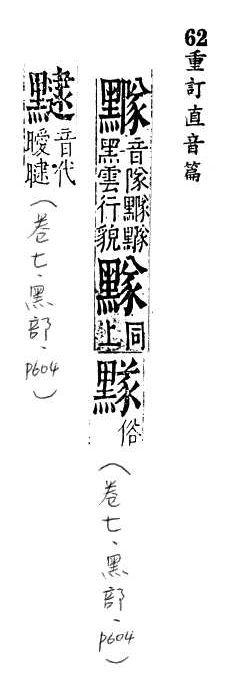 62重訂直音篇
音隊
黑雲行貌
同上
俗
(卷七、黑部、p604)
音代
曖
(卷七、黑部、p604)